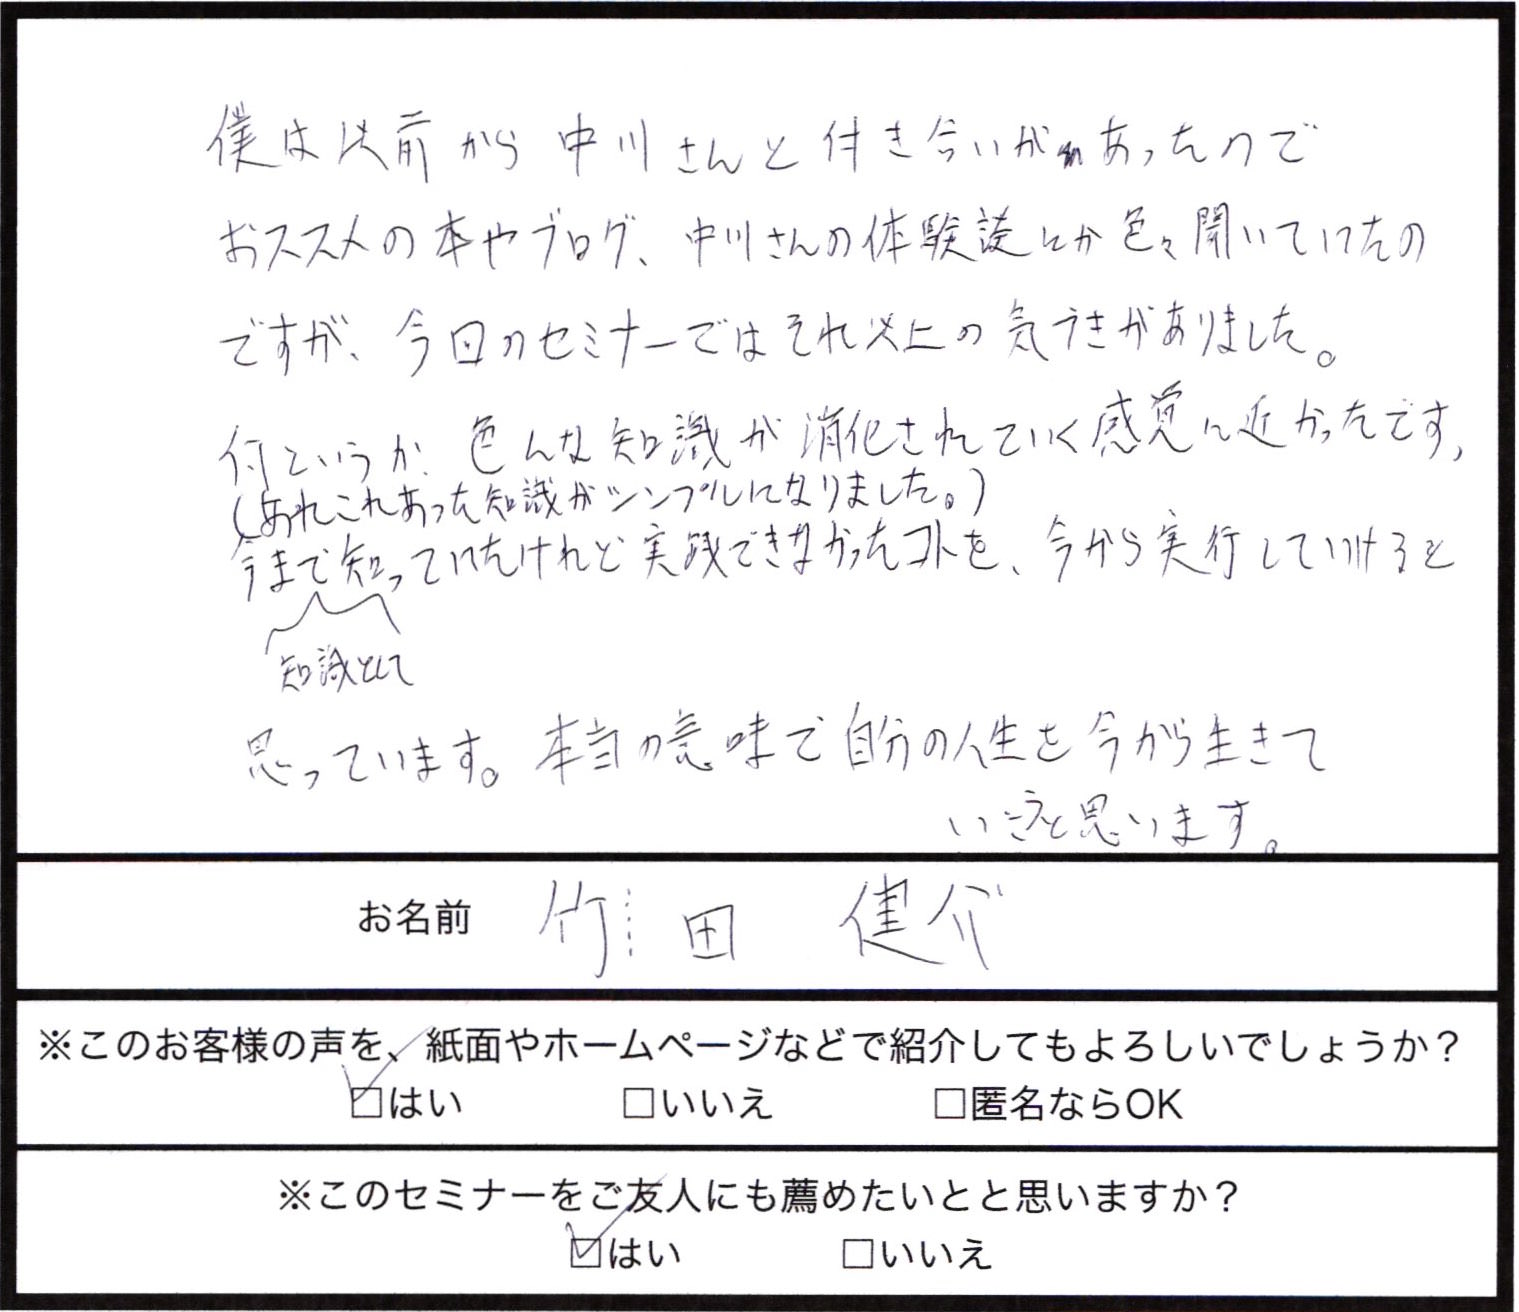 僕は以前から中川さんと付き合いがあったので
おススメの本やブログ、中川さんの体験談とか色々聞いていたの
ですが、今回のセミナーではそれ以上の気づきがありました。
何というか、色んな知識が消化されていく感覚に近かったです、
(あれこれあった知識がシンプルになりました。)
今まで知っていたけれど実践できなかったコトを、今から実行していけると
知識として
思っています。本当の意味で自分の人生を今から生きて
いこうと思います。
お名前 竹田 健介
※このお客様の声を、紙面やホームページなどで紹介してもよろしいでしょうか？
☑はい □いいえ □匿名ならOK
※このセミナーをご友人にも薦めたいとと思いますか？
☑はい □いいえ